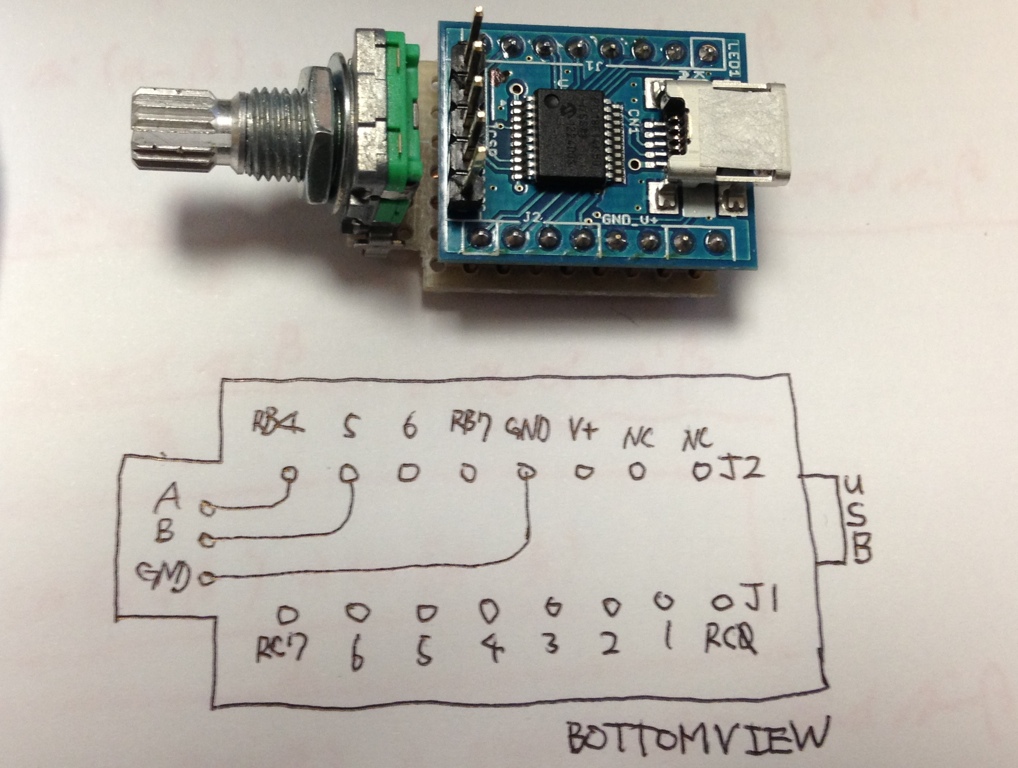 LED1
J1
K
CN1
J2
GND V+
RB4 5 6 RB7 GND V+ NC NC
J2
A
B
GND
USB
J1
RC7 6 5 4 3 2 1 RC0
BOTTOMVIEW